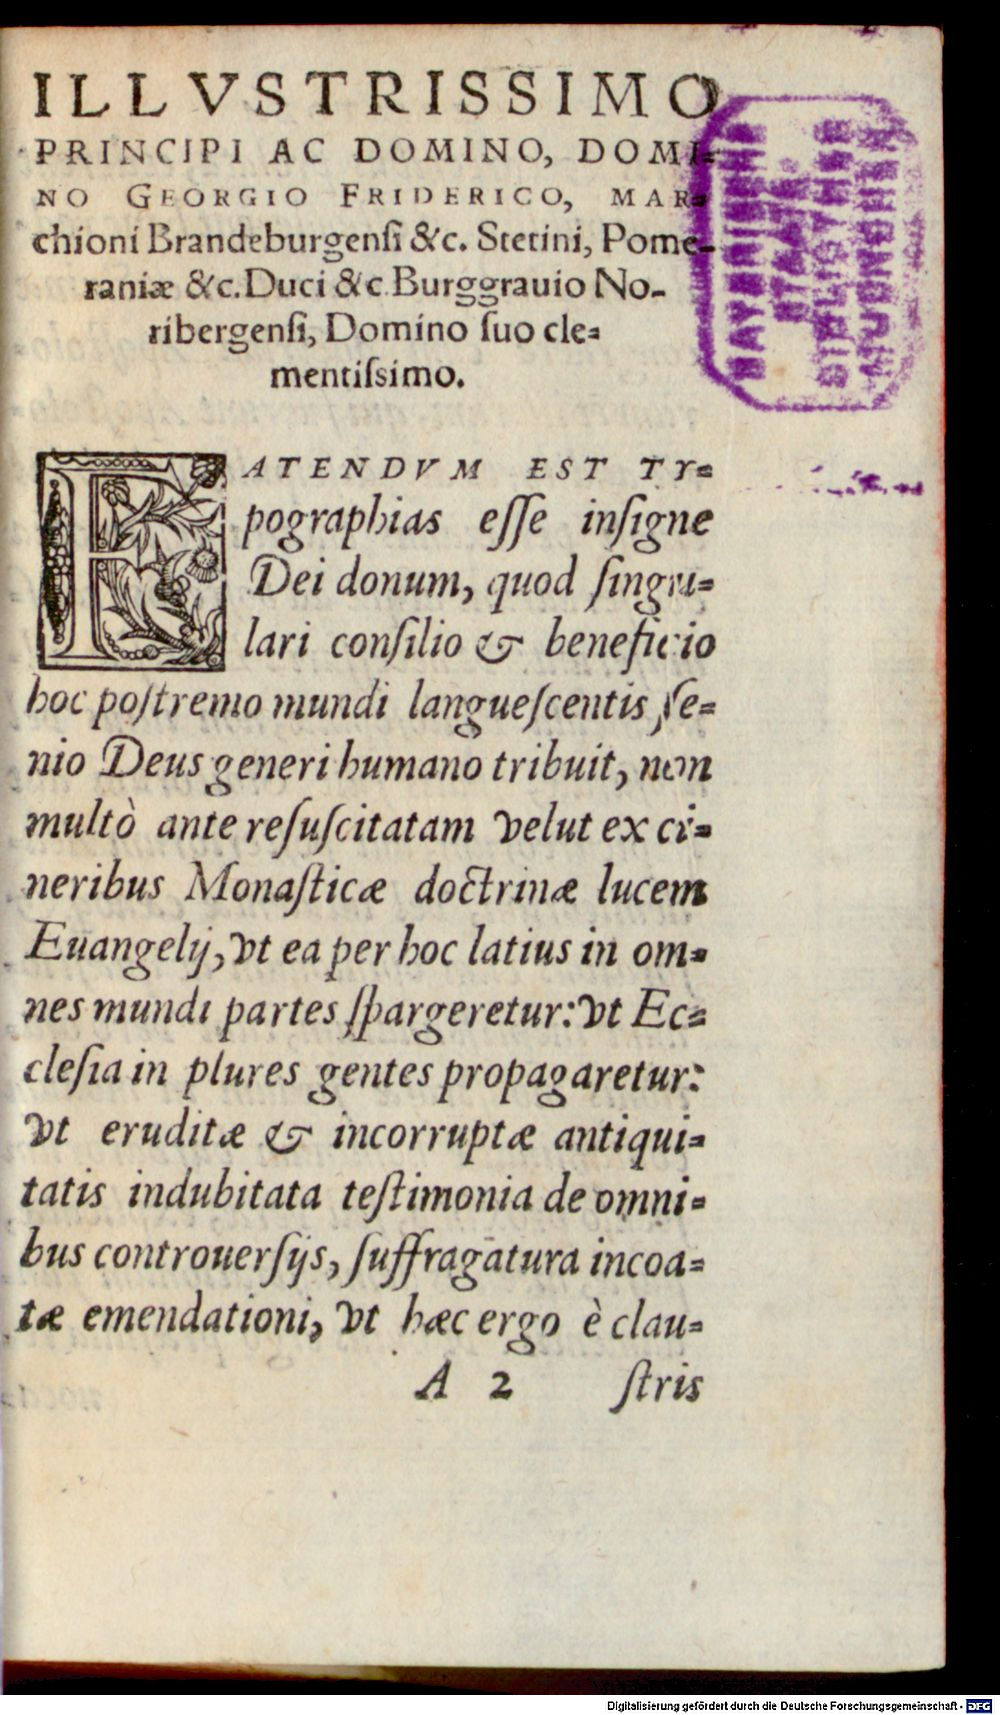 ILLVSTRISSIMO
PRINCIPI AC DOMINO, DOMI-
NO GEORGIO FRIDERICO, MAR-
chioni Brandeburgenſi &c. Stetini, Pome-
raniæ &c. Duci &c Burggrauio No-
ribergenſi, Domino ſuo cle-
mentiſsimo.
FATENDVM EST TY-
pographias eſſe inſigne
Dei donum, quod ſingu-
lari conſilio & beneficio
hoc poſtremo mundi langueſcentis ſe-
nio Deus generi humano tribuit, non
multò ante reſuſcitatam velut ex ci-
neribus Monaſticæ doctrinæ lucem
Euangelij, vt ea per hoc latius in om-
nes mundi partes ſpargeretur: vt Ec-
cleſia in plures gentes propagaretur:
vt eruditæ & incorruptæ antiqui-
tatis indubitata teſtimonia de omni-
bus controuerſijs, ſuffragatura incoa-
tæ emendationi, vt hæc ergo è clau-
A 2 ſtris
BAYERISCHE
STAATS-
BIBLIOTHEK
MUENCHEN
Digitalisierung gefördert durch die Deutsche Forschungsgemeinschaft - DFG